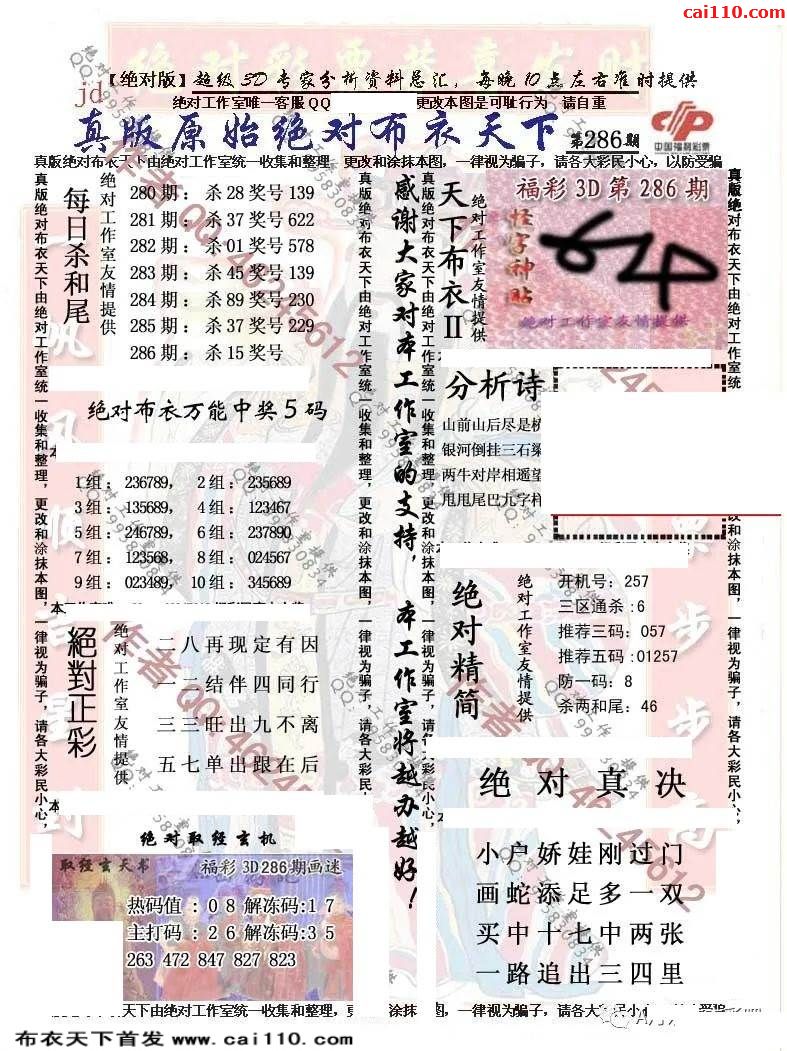 cai110.com
【绝对版】超级3D专家分析资料总汇，每晚10点左右准时提供
jd
绝对工作室唯一客服QQ 更改本图是可耻行为 请自重
真版原始绝对布衣天下 第286期
中国福利彩票
真版绝对布衣天下由绝对工作室统一收集和整理，更改和涂抹本图，一律视为骗子，请各大彩民小心，以防受骗
每日杀和尾
绝对工作室友情提供
280期：杀28奖号139
281期：杀37奖号622
282期：杀01奖号578
283期：杀45奖号139
284期：杀89奖号230
285期：杀37奖号229
286期：杀15奖号
绝对布衣万能中奖5码
1组：236789， 2组：235689
3组：135689， 4组：123467
5组：246789， 6组：237890
7组：123568， 8组：024567
9组：023489， 10组：345689
絕對正彩
绝对工作室友情提供
二八再现定有因
一二结伴四同行
三三旺出九不离
五七单出跟在后
绝对取经玄机
取经玄天书 福彩3D286期画迷
热码值：08解冻码:17
主打码：26解冻码:35
263 472 847 827 823
感谢大家对本工作室的支持，本工作室将越办越好！
天下布衣II
绝对工作室友情提供
福彩3D第286期
怪字神贴
绝对工作室友情提供
分析诗
山前山后尽是
银河倒挂三石
两牛对岸相遥望
甩甩尾巴九字
绝对精简
绝对工作室友情提供
开机号：257
三区通杀：6
推荐三码：057
推荐五码：01257
防一码：8
杀两和尾：46
绝对真决
小户娇娃刚过门
画蛇添足多一双
买中十七中两张
一路追出三四里
真版绝对布衣天下由绝对工作室统一收集和整理，更改和涂抹本图，一律视为骗子，请各大彩民小心，
真版绝对布衣天下由绝对工作室统一收集和整理，更改和涂抹本图，一律视为骗子，请各大彩民小心，
作者QQ 46245612
衣天下由绝对工作室统一收集和整理，更改和涂抹本图，一律视为骗子，请各大彩民小心，
布衣天下首发 www.cai110.com